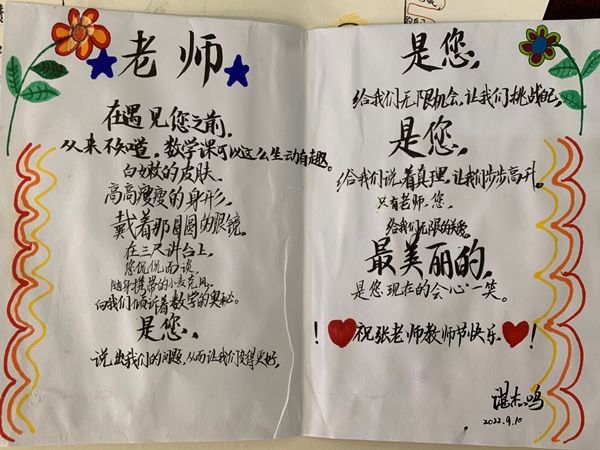 老师
在遇见您之前，
从来不知道，数学课可以这么生动有趣。
白嫩的皮肤，
高高瘦瘦的身形，
戴着那圆圆的眼镜。
在三尺讲台上，
您侃侃而谈，
随身携带的小麦克风，
向我们倾诉着数学的奥秘。
是您，
说出我们的问题，从而让我们变得更好，
是您，
给我们无限机会，让我们挑战自己，
是您，
给我们说着真理，让我们步步高升。
只有老师，您，
给我们无限的关爱。
最美丽的，
是您现在的会心一笑。
！祝张老师教师节快乐！
湛杰鸣
2022.9.10